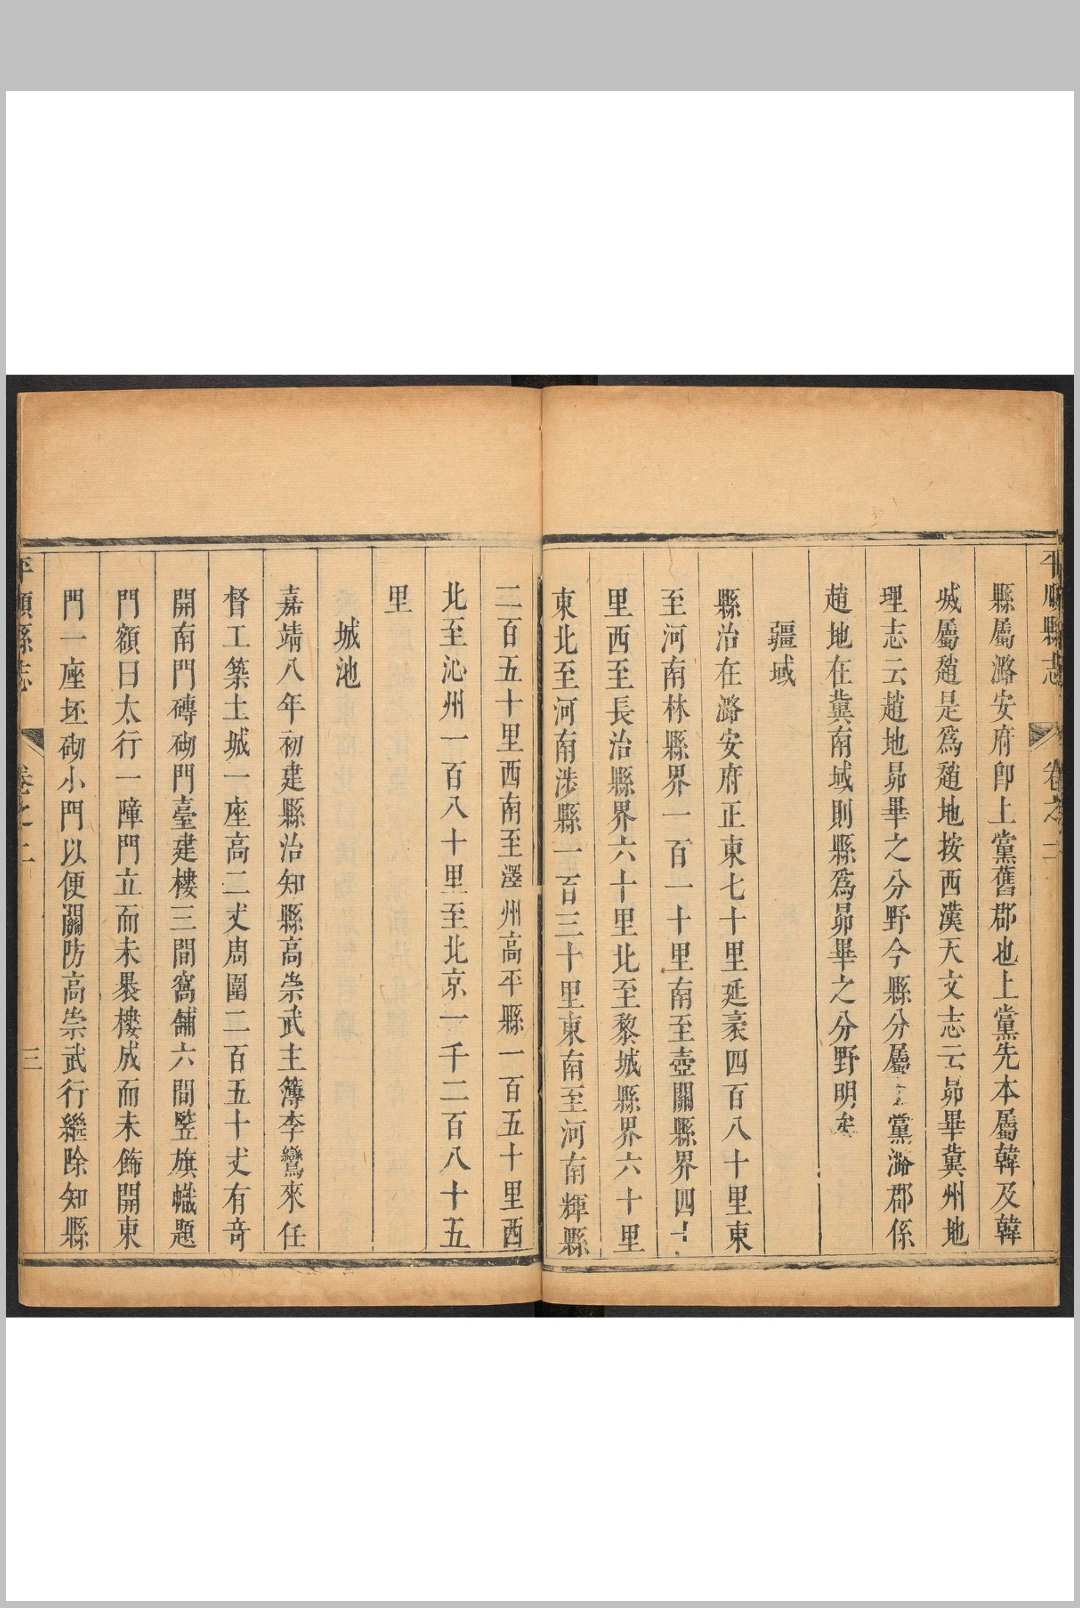 平順縣志
卷之二
縣屬潞安府即上黨舊郡也上黨先本屬韓及韓
城屬趙是爲趙地按西漢天文志云昴畢冀州地
理志云趙地昴畢之分野今縣分屬上黨潞郡係
趙地在冀南域則縣爲昴畢之分野明矣
疆域
縣治在潞安府正東七十里延袤四百八十里東
至河南林縣界一百一十里南至壺關縣界四十
里西至長治縣界六十里北至黎城縣界六十里
東北至河南涉縣一百三十里東南至河南輝縣
二百五十里西南至澤州高平縣一百五十里西
北至沁州一百八十里至北京一千二百八十五
里
城池
嘉靖八年初建縣治知縣高崇武主簿李鸞來任
督工築土城一座高二丈周圍二百五十丈有奇
開南門磚砌門臺建樓三間窩舖六間竪旗幟題
門額曰太行一障門立而未鞏樓成而未飾開東
門一座坯砌小門以便關防高崇武行繼除知縣
平順縣志
卷之二
三